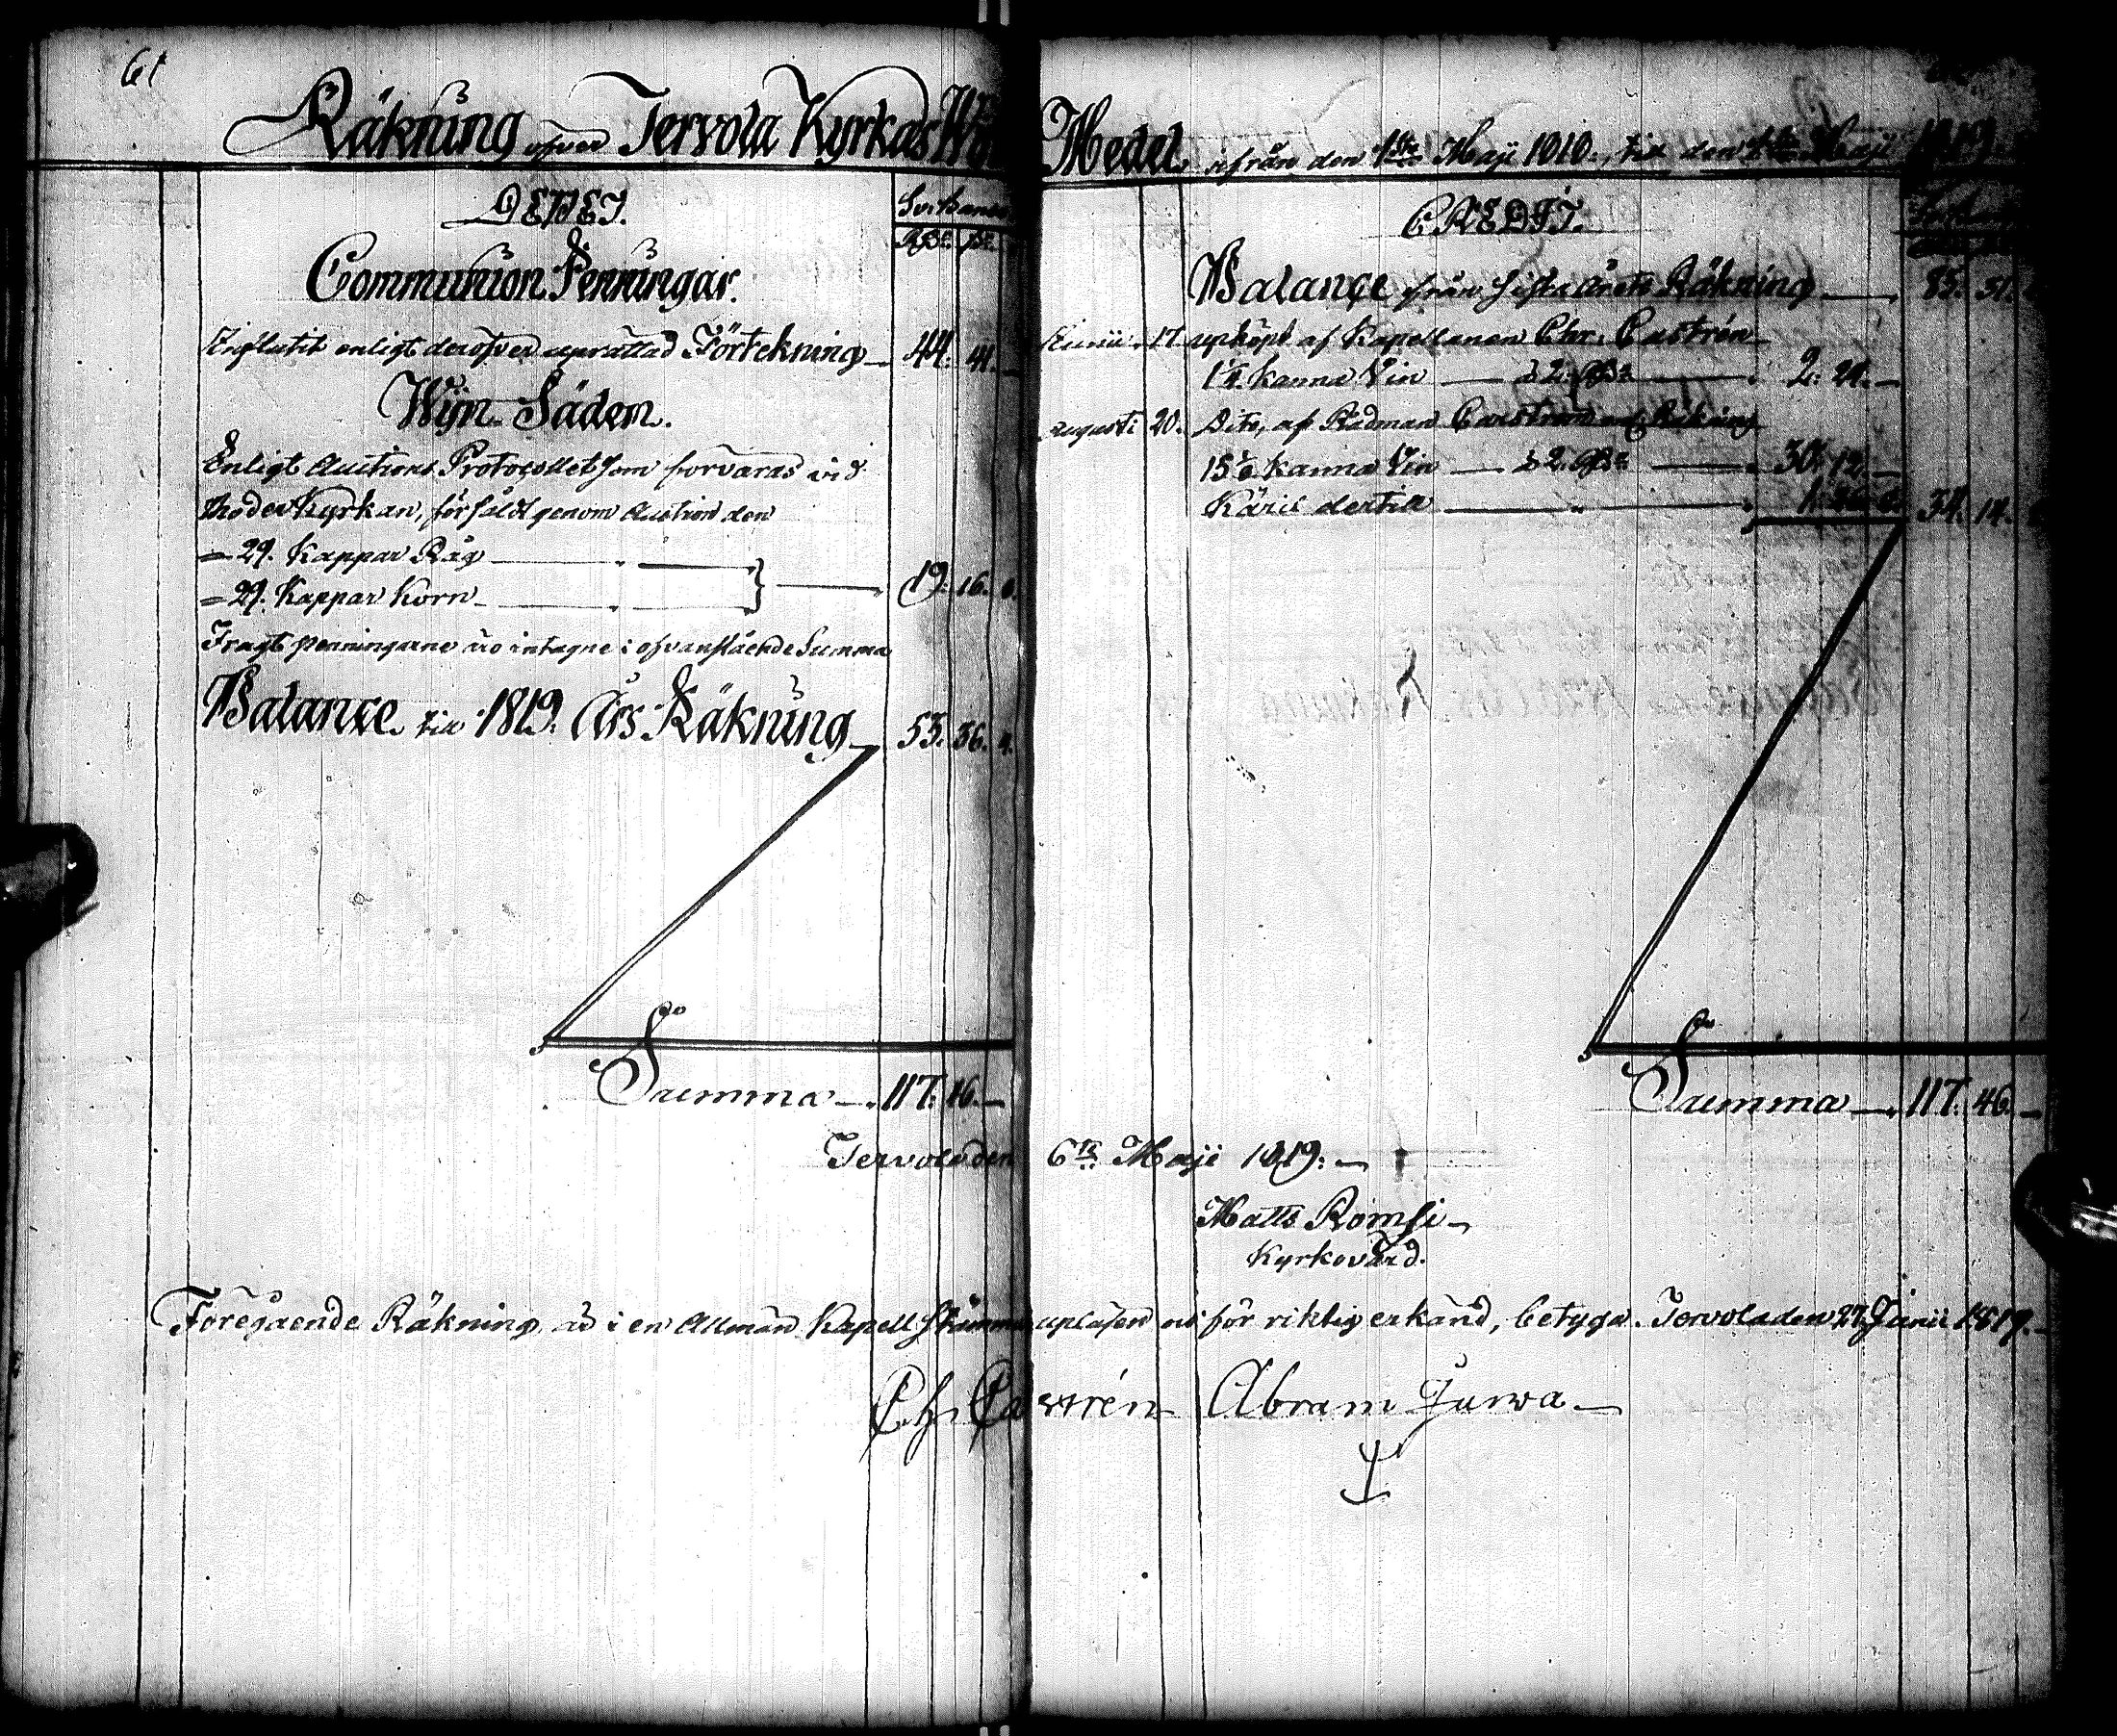 61
Räkning öfver Tervola Kyrkas
DEBET.
Communion Penningar.
Influtit enligt deröfver uprättad Förtekning — 44. 41. —
Wijn Säden.
Enligt Auctions Protocollet som förvaras vid
Moder Kyrkan, försåldt genom Auction den
= 29. Kappar Råg
= 29. Kappar Korn — 19. 16.
Fragt penningarne äro intagne i ofvanstående Summa
Balance till 1819. Års Räkning — 53. 36.
Summa — 117. 46. —
Medel ifrån den 1sta Maji 1818. till den 1sta Maji 1819
CREDIT.
Balance från sista Årets Räkning — 85. 31.
Junii 17. upköpt af Kapellanen Chr. Castrén
1¼ Kanna Vin — à 2 — 2: 24. —
Augusti 20. Dito, af Rådman Räkning
15⅛ Kanna Vin — à 2 — 30. 12. —
Käril dertill — 34. 14.
Summa — 117. 46. —
Tervola den 6te Maji 1819. —
Matts Romsi —
Kyrkovärd.
Föregående Räkning är i en Allmän Kapell Stämma upläsen och för riktig erkänd, betyga. Tervola den 27 Junii 1819.
Ch. Castrén Abram Jurva —